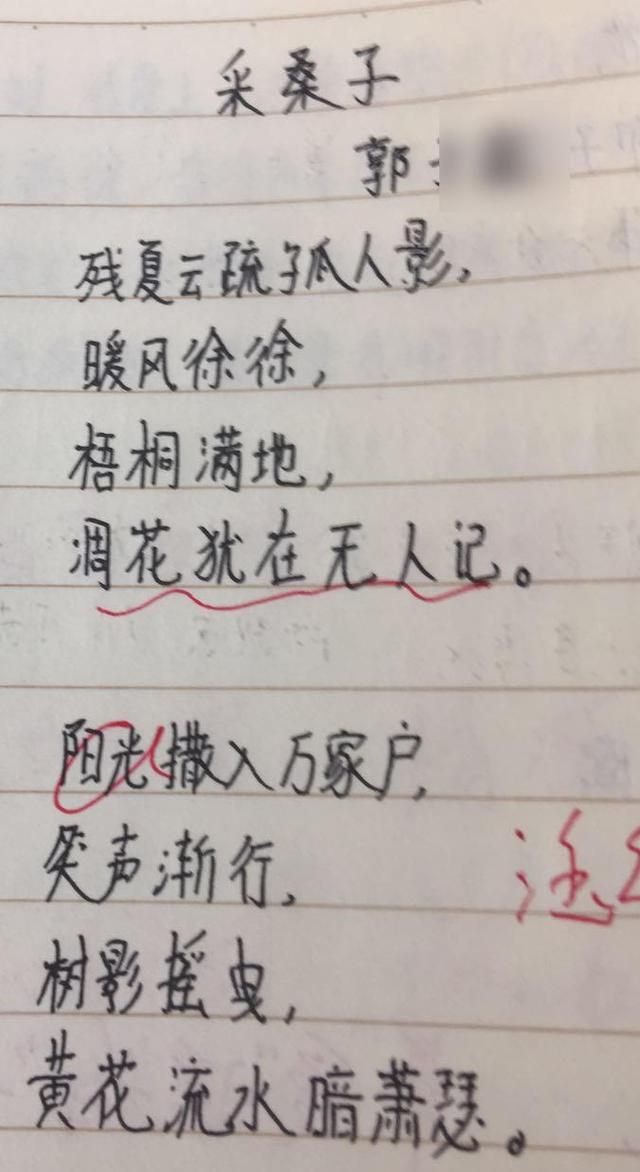 采桑子
郭
残夏云疏孤人影，
暖风徐徐，
梧桐满地，
凋花犹在无人记。
阳光撒入万家户，
笑声渐行，
树影摇曳，
黄花流水暗萧瑟。